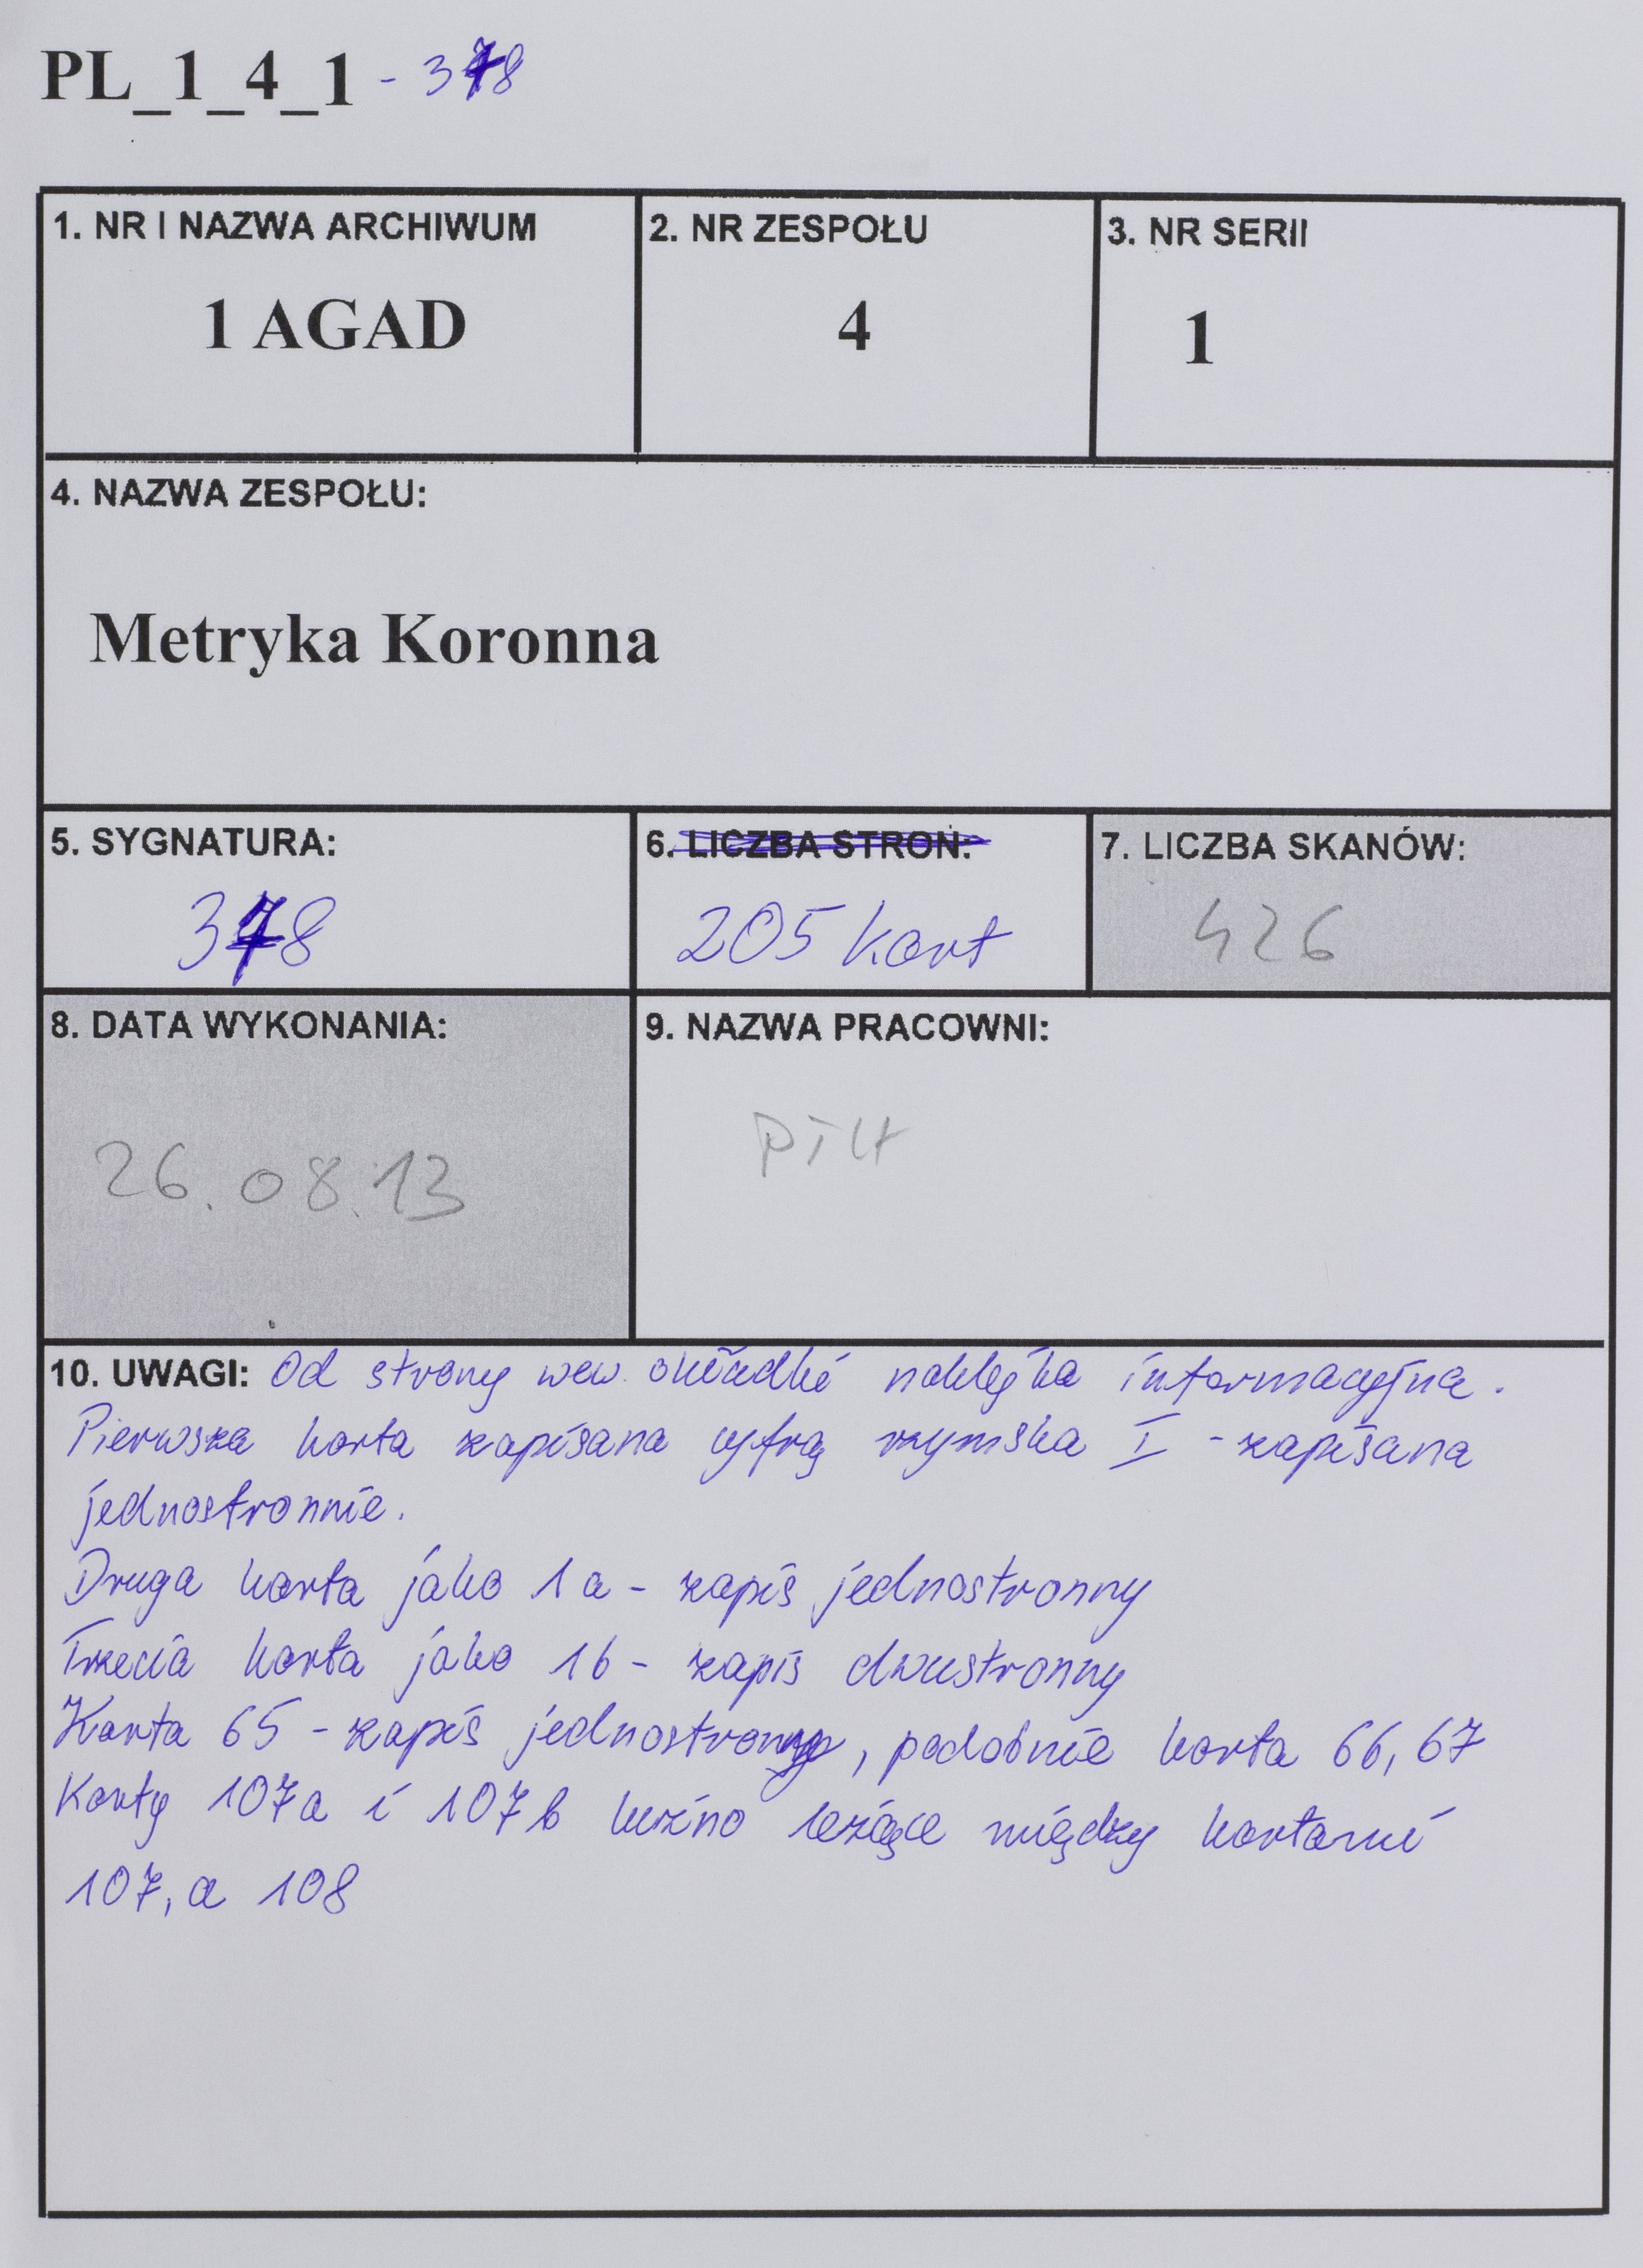 PL_1_4_1 - 378
1. NR I NAZWA ARCHIWUM
1 AGAD
2. NR ZESPOŁU
4
3. NR SERII
1
4. NAZWA ZESPOŁU:
Metryka Koronna
5. SYGNATURA:
378
6. LICZBA STRON:
205 kart
7. LICZBA SKANÓW:
426
8. DATA WYKONANIA:
26.08.13
9. NAZWA PRACOWNI:
10. UWAGI: Od strony wew. okładki naklejka informacyjna.
Pierwsza karta zapisana cyfrą rzymska I - zapisana
jednostronnie.
Druga karta jako 1a - zapis jednostronny
Trzecia karta jako 1b - zapis dwustronny
Karta 65 - zapis jednostronny, podobnie karta 66, 67
Karty 107a i 107b luźno leżące między kartami
107, a 108